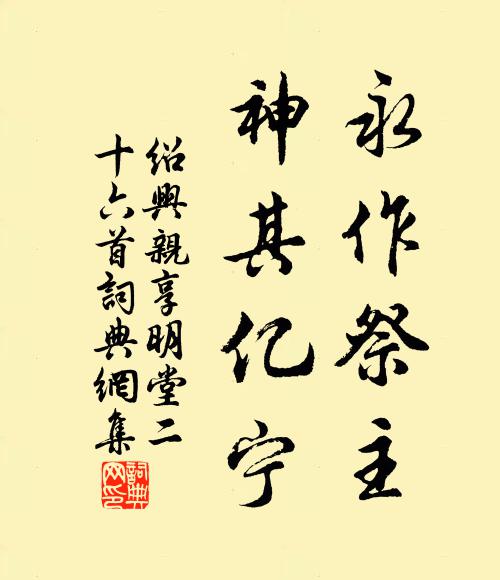 永作祭主
神其亿宁
绍興親享明堂二
十六首詞典網集
詞典
网印